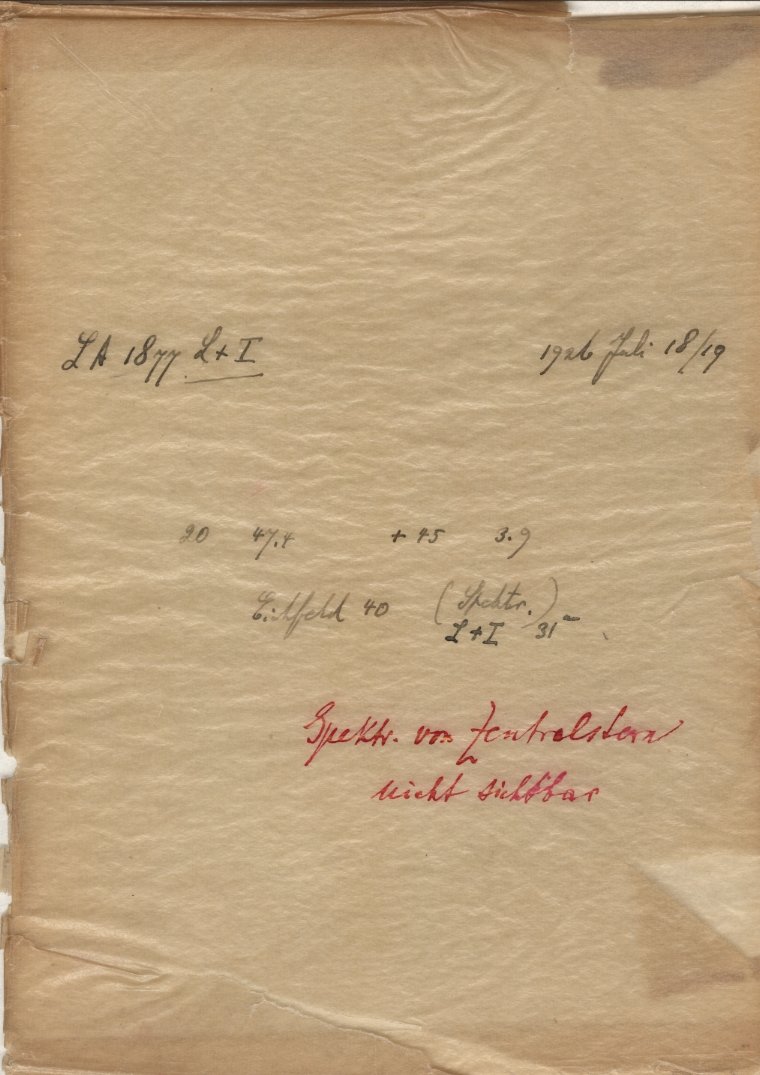 LA 1877 L+I 1926 Juli 18/19
20 47.4 + 45 3.9
Eichfeld 40 (Spektr.)
L+I 31-
Spektr. von Zentralstern
nicht sichtbar